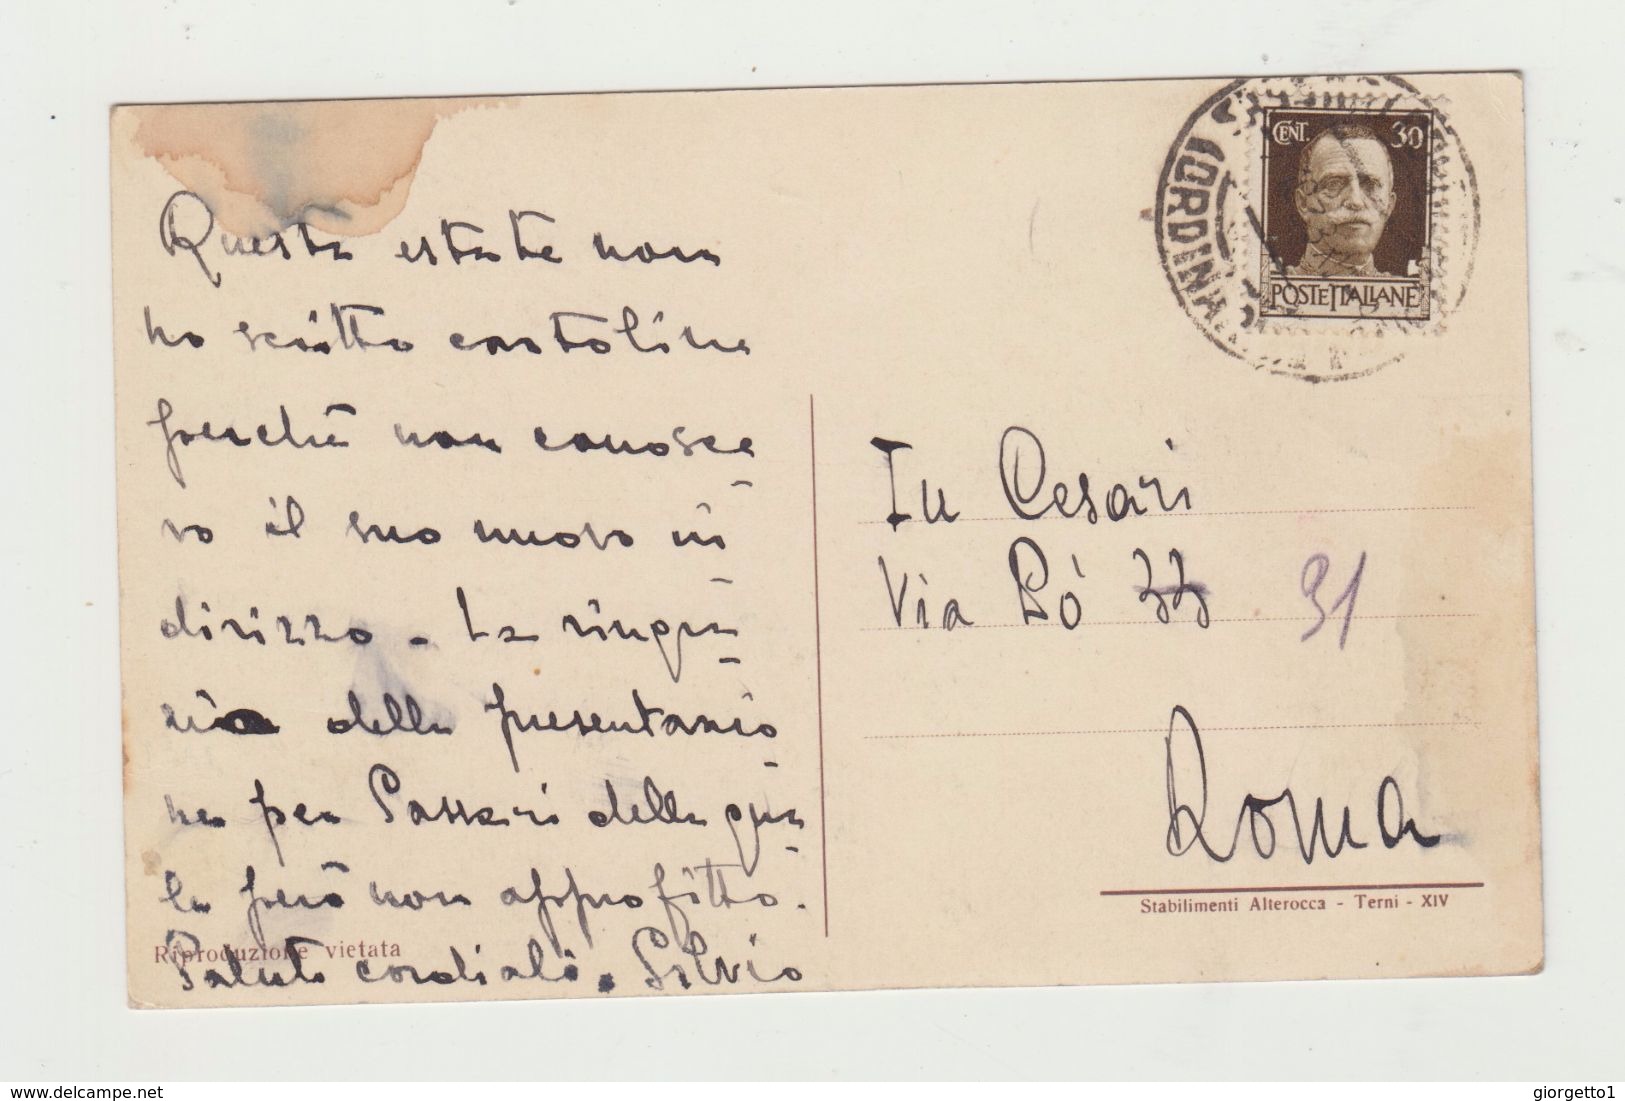 Questa estate non
ho scritto cartoline
perché non conosce-
vo il suo nuovo in-
dirizzo - La ringra-
zio della presentazio-
ne per Passeri della qua-
le però non approfitto.
Saluti cordiali. Silvio
Riproduzione vietata
CENT. 30
POSTE ITALIANE
(ORDINARIE
Cesari
Via Pó 33 31
Roma
Stabilimenti Alterocca - Terni - XIV
www.delcampe.net
giorgetto1